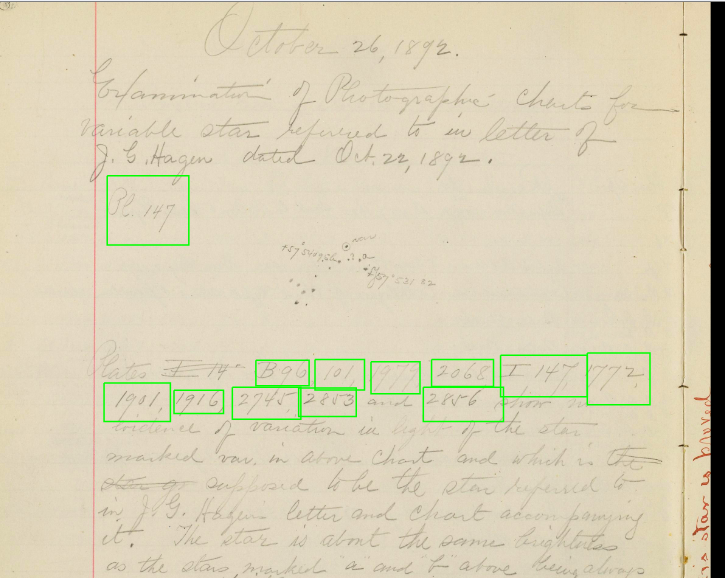 October 26, 1892.
Examination of Photographic charts for
variable star refered to in letter of
J. G. Hagen dated Oct. 22, 1892.
Pl. 147
var.
a
Plates I 14 B 96, 101, 1979, 2068, I 147, 1772,
1901, 1916, 2745, 2853 and 2856 show no
evidence of variation in light of the star
marked var. in above chart and which is the
star supposed to be the star referred to
in J. G. Hagen letter and chart accompanying
it. The star is about the same brightness
as the stars marked "a and b" above being always
is star is proved